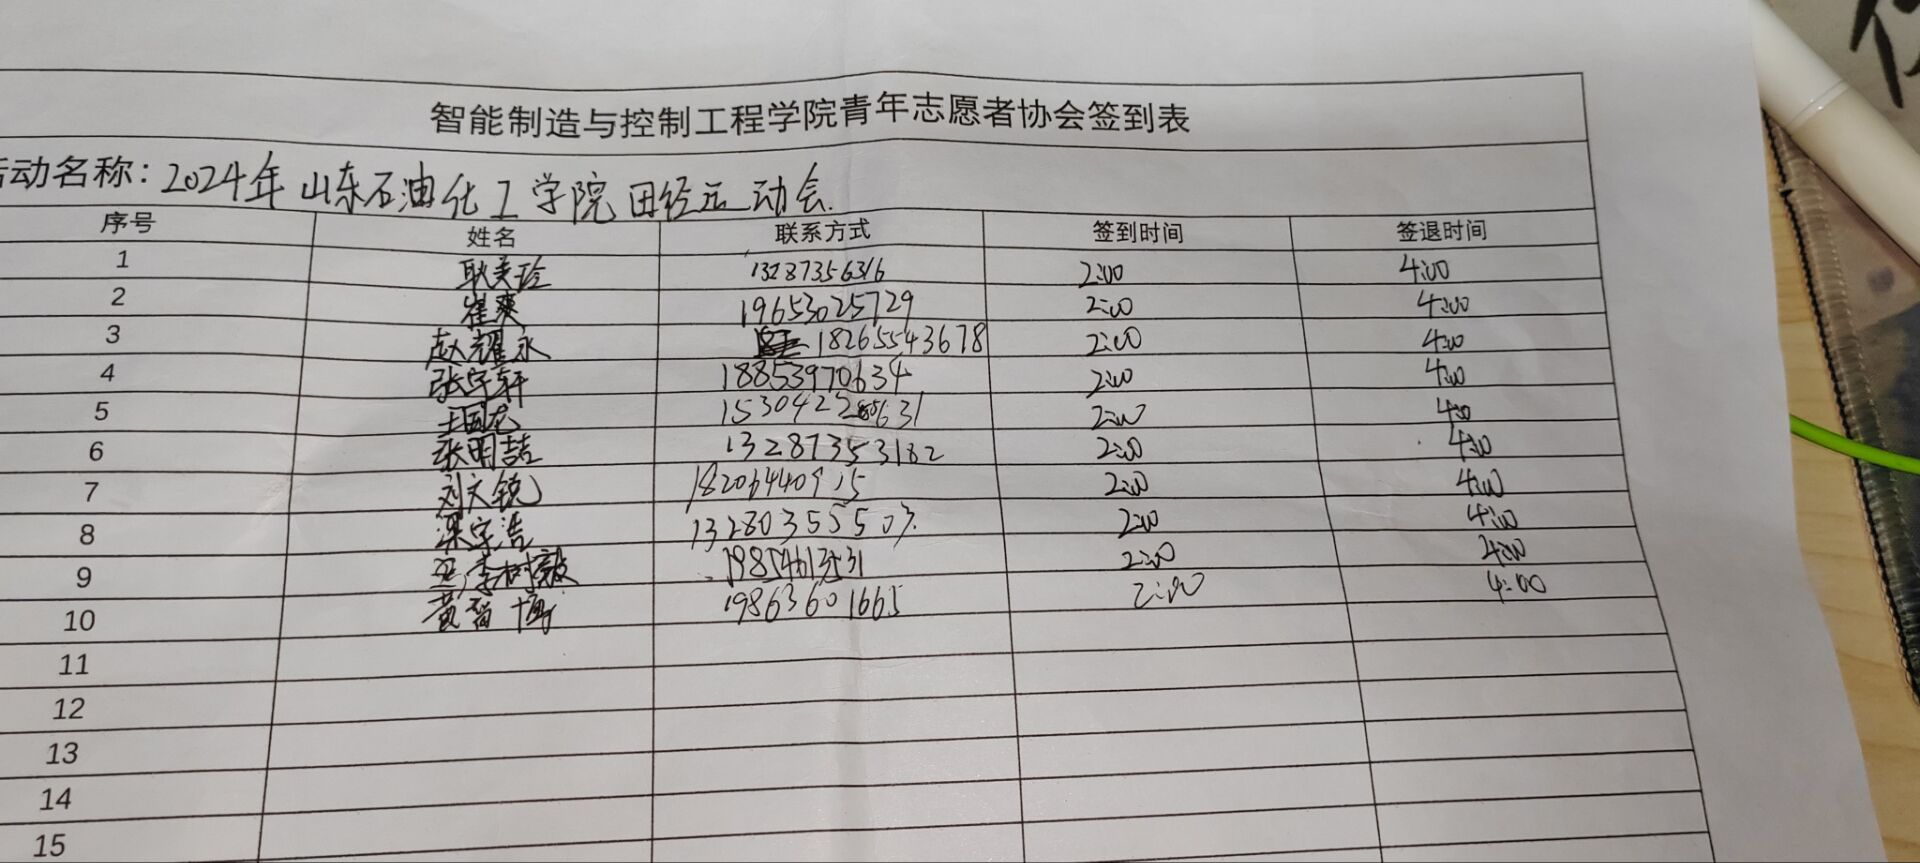 智能制造与控制工程学院青年志愿者协会签到表
活动名称：2024年山东石油化工学院田径运动会.
序号 姓名 联系方式 签到时间 签退时间
1 耿美玲 13287356316 2:00 4:00
2 崔爽 19653025729 2:00 4:00
3 赵耀永 18265543678 2:00 4:00
4 张宇轩 18853970634 2:00 4:00
5 王国龙 2:00 4:00
6 张明喆 13287353182 2:00 4:00
7 刘文锐 18206440915 2:00 4:00
8 梁宇浩 13280355503. 2:00 4:00
9 李树毅 2:00 4:00
10 黄智博 19863601665 2:00 4:00
11
12
13
14
15